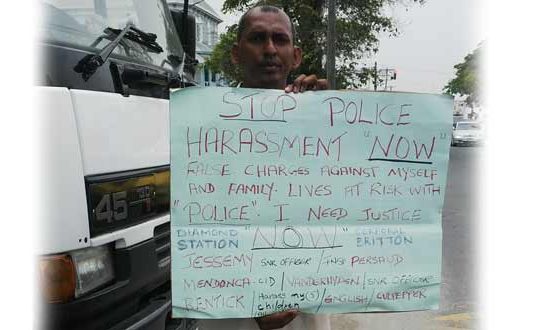 STOP POLICE
HARASSMENT "NOW"
FALSE CHARGES AGAINST MYSELF
AND FAMILY. LIVES AT RISK WITH
"POLICE". I NEED JUSTICE
DIAMOND STATION "NOW" COLONIAL BRITTON
JESSEMY SNR OFFICER / INSP PERSAUD
MENDONCA-CID / VANDERHYDEN / SNR OFFICER
RENTICK / Harass my (5) children / ENGLISH /
45